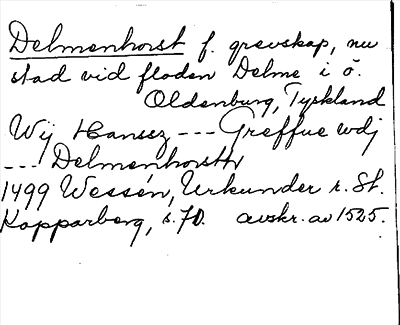 Delmenhorst f. grevskap, nu
stad vid floden Delme i ö.
Oldenburg, Tyskland
Wij Hanssz --- Greffue wdj
--- Delmenhorsth
1499 Wessén, Urkunder r. St.
Kopparberg, s. 70. avskr. av 1525.